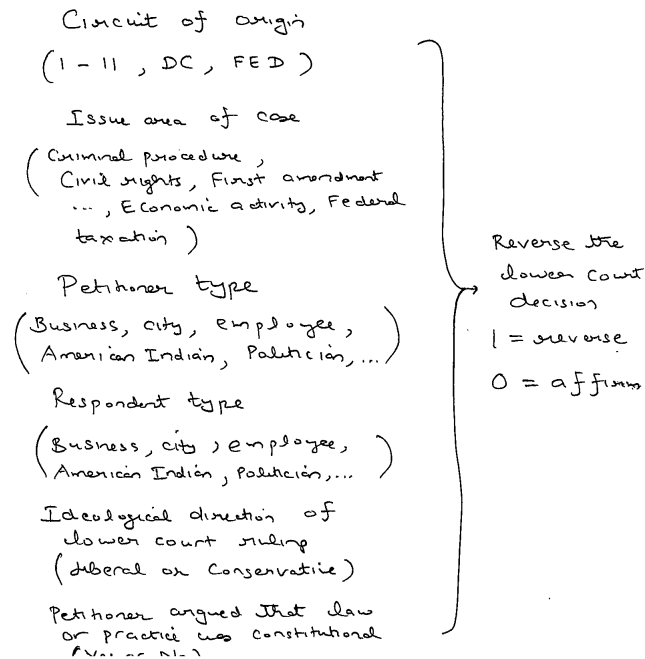 Circuit of origin
(1 - 11, DC, FED)
Issue area of case
(Criminal procedure,
Civil rights, First amendment
..., Economic activity, Federal
taxation)
Petitioner type
(Business, city, employee,
American Indian, Politician, ...)
Respondent type
(Business, city, employee,
American Indian, Politician, ...)
Ideological direction of
lower court ruling
(Liberal or Conservative)
Petitioner argued that law
or practice was constitutional
(Yes or No)
Reverse the
lower court
decision
1 = reverse
0 = affirm